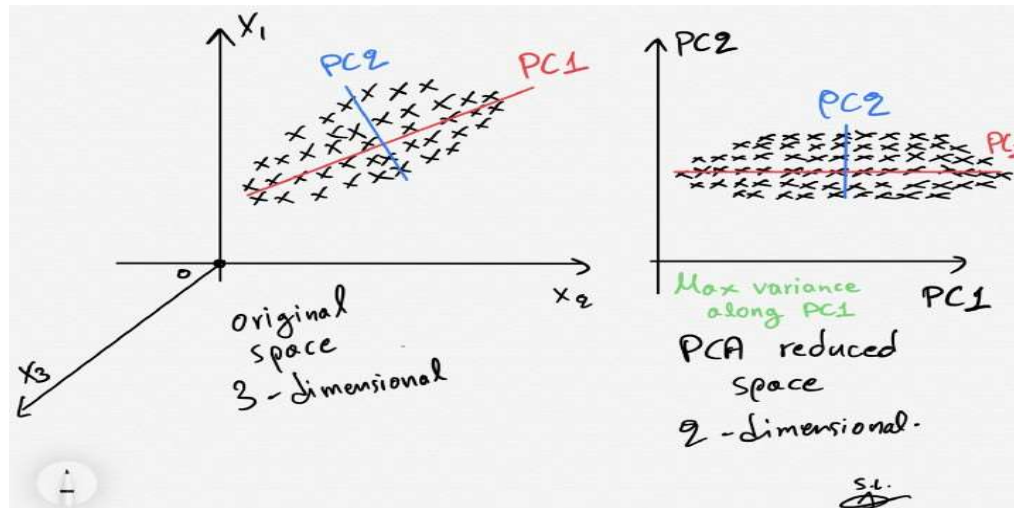 X1
PC2
PC1
0
X2
X3
original
space
3-dimensional
PC2
PC2
PC
Max variance
along PC1
PC1
PCA reduced
space
2-dimensional.
S.L.